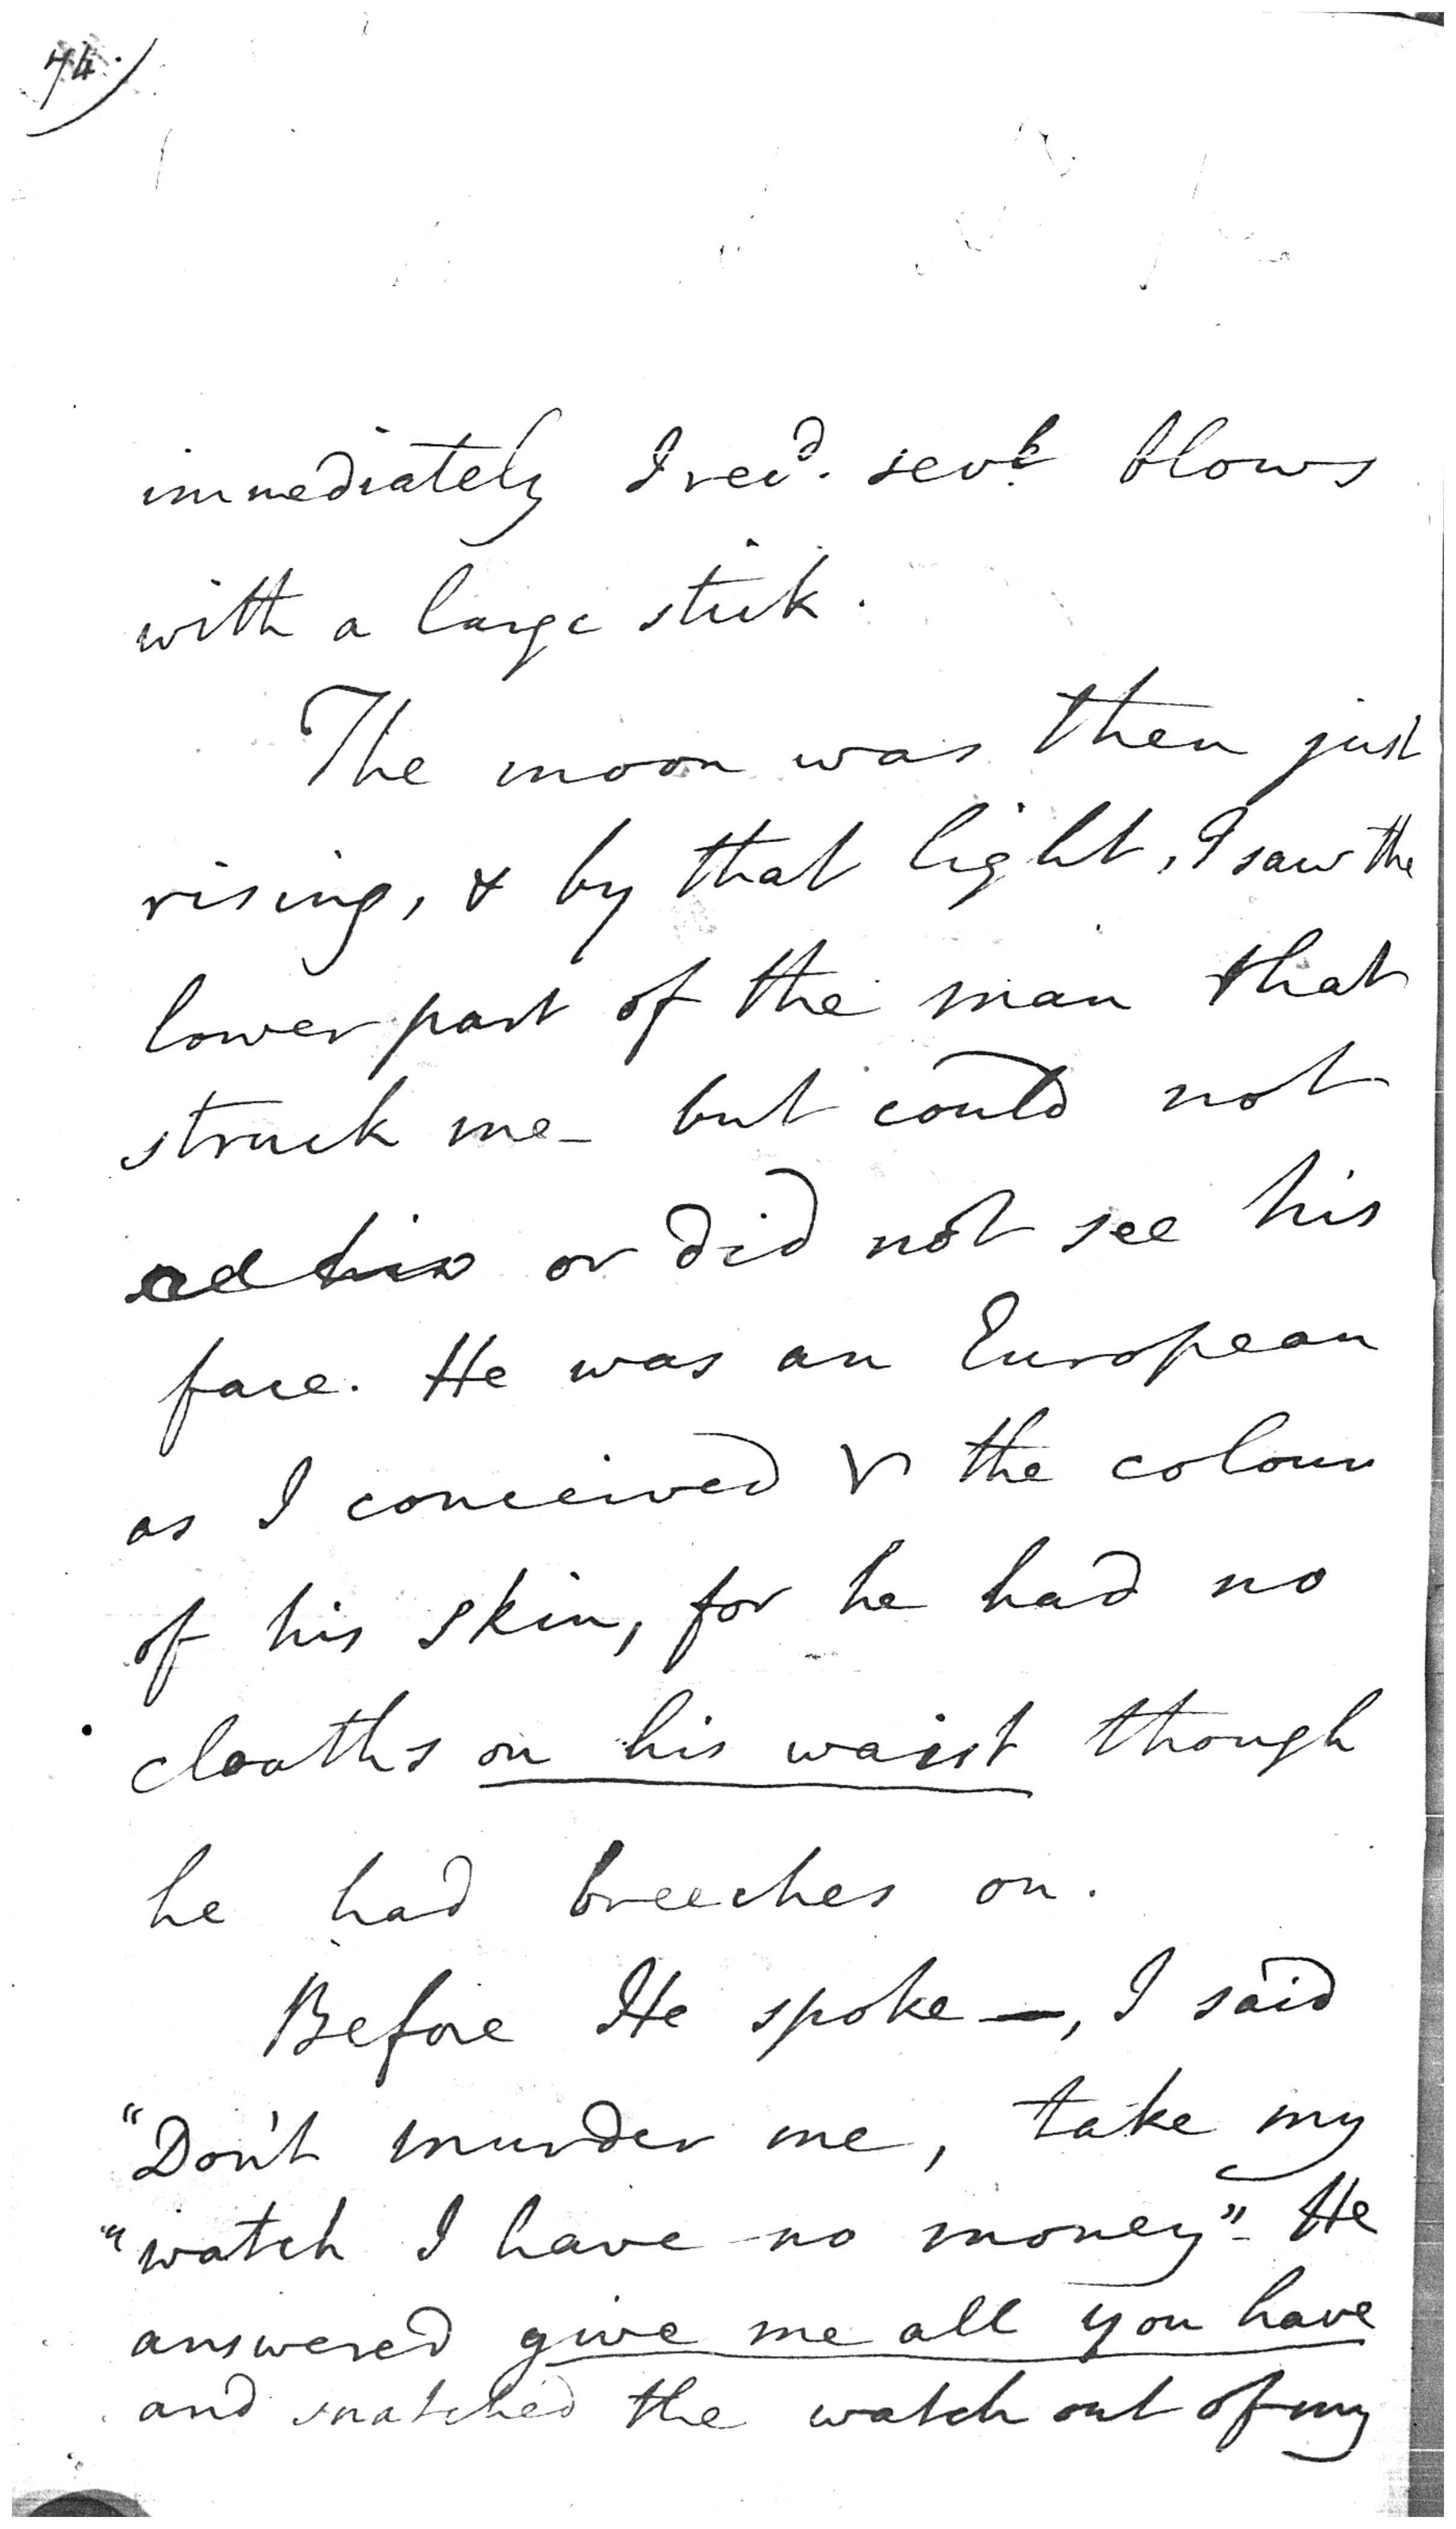 74.
immediately I recd. sevl. blows
with a large stick.
The moon was then just
rising, & by that light, I saw the
lower part of the man that
struck me - but could not
or did not see his
face. He was an European
as I conceived & the colour
of his skin, for he had no
cloaths on his waist though
he had breeches on.
Before He spoke —, I said
"Don't murder me, take my
"watch I have no money" - He
answered give me all you have
and snatched the watch out of my